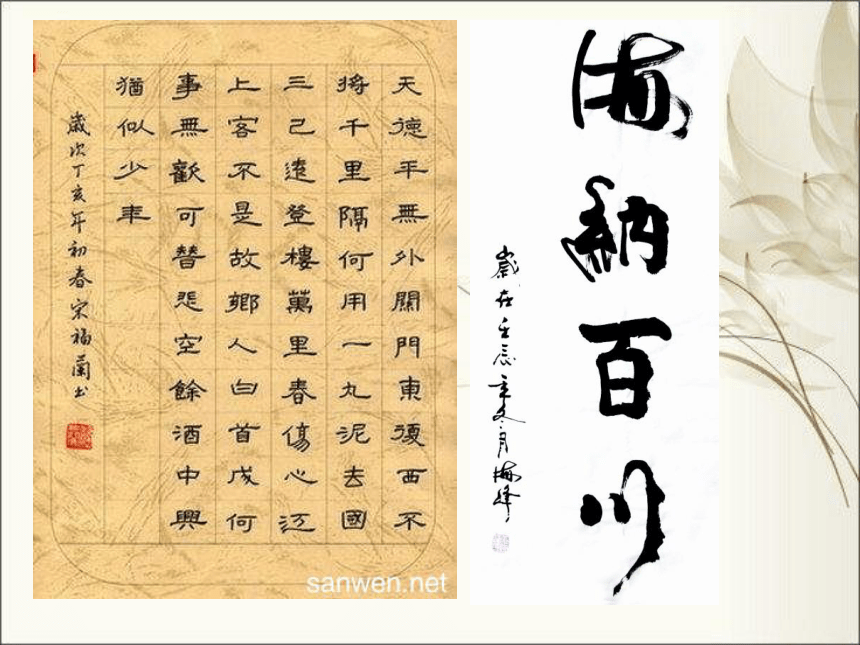 天德平無外關門東復西不
將千里隔何用一丸泥去國
三己遠登樓萬里春傷心江
上客不是故鄉人白首成何
事無歡可替悲空餘酒中興
猶似少年
歲次丁亥年初春宋福蘭书
sanwen.net
海納百川
歲在壬辰年月海峰